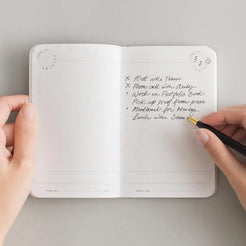 × Meet with Team
× Phone call with Andy
• Work on Portfolio Book
Pick up proof from press
• Moodboard for Monday
Lunch with Sam